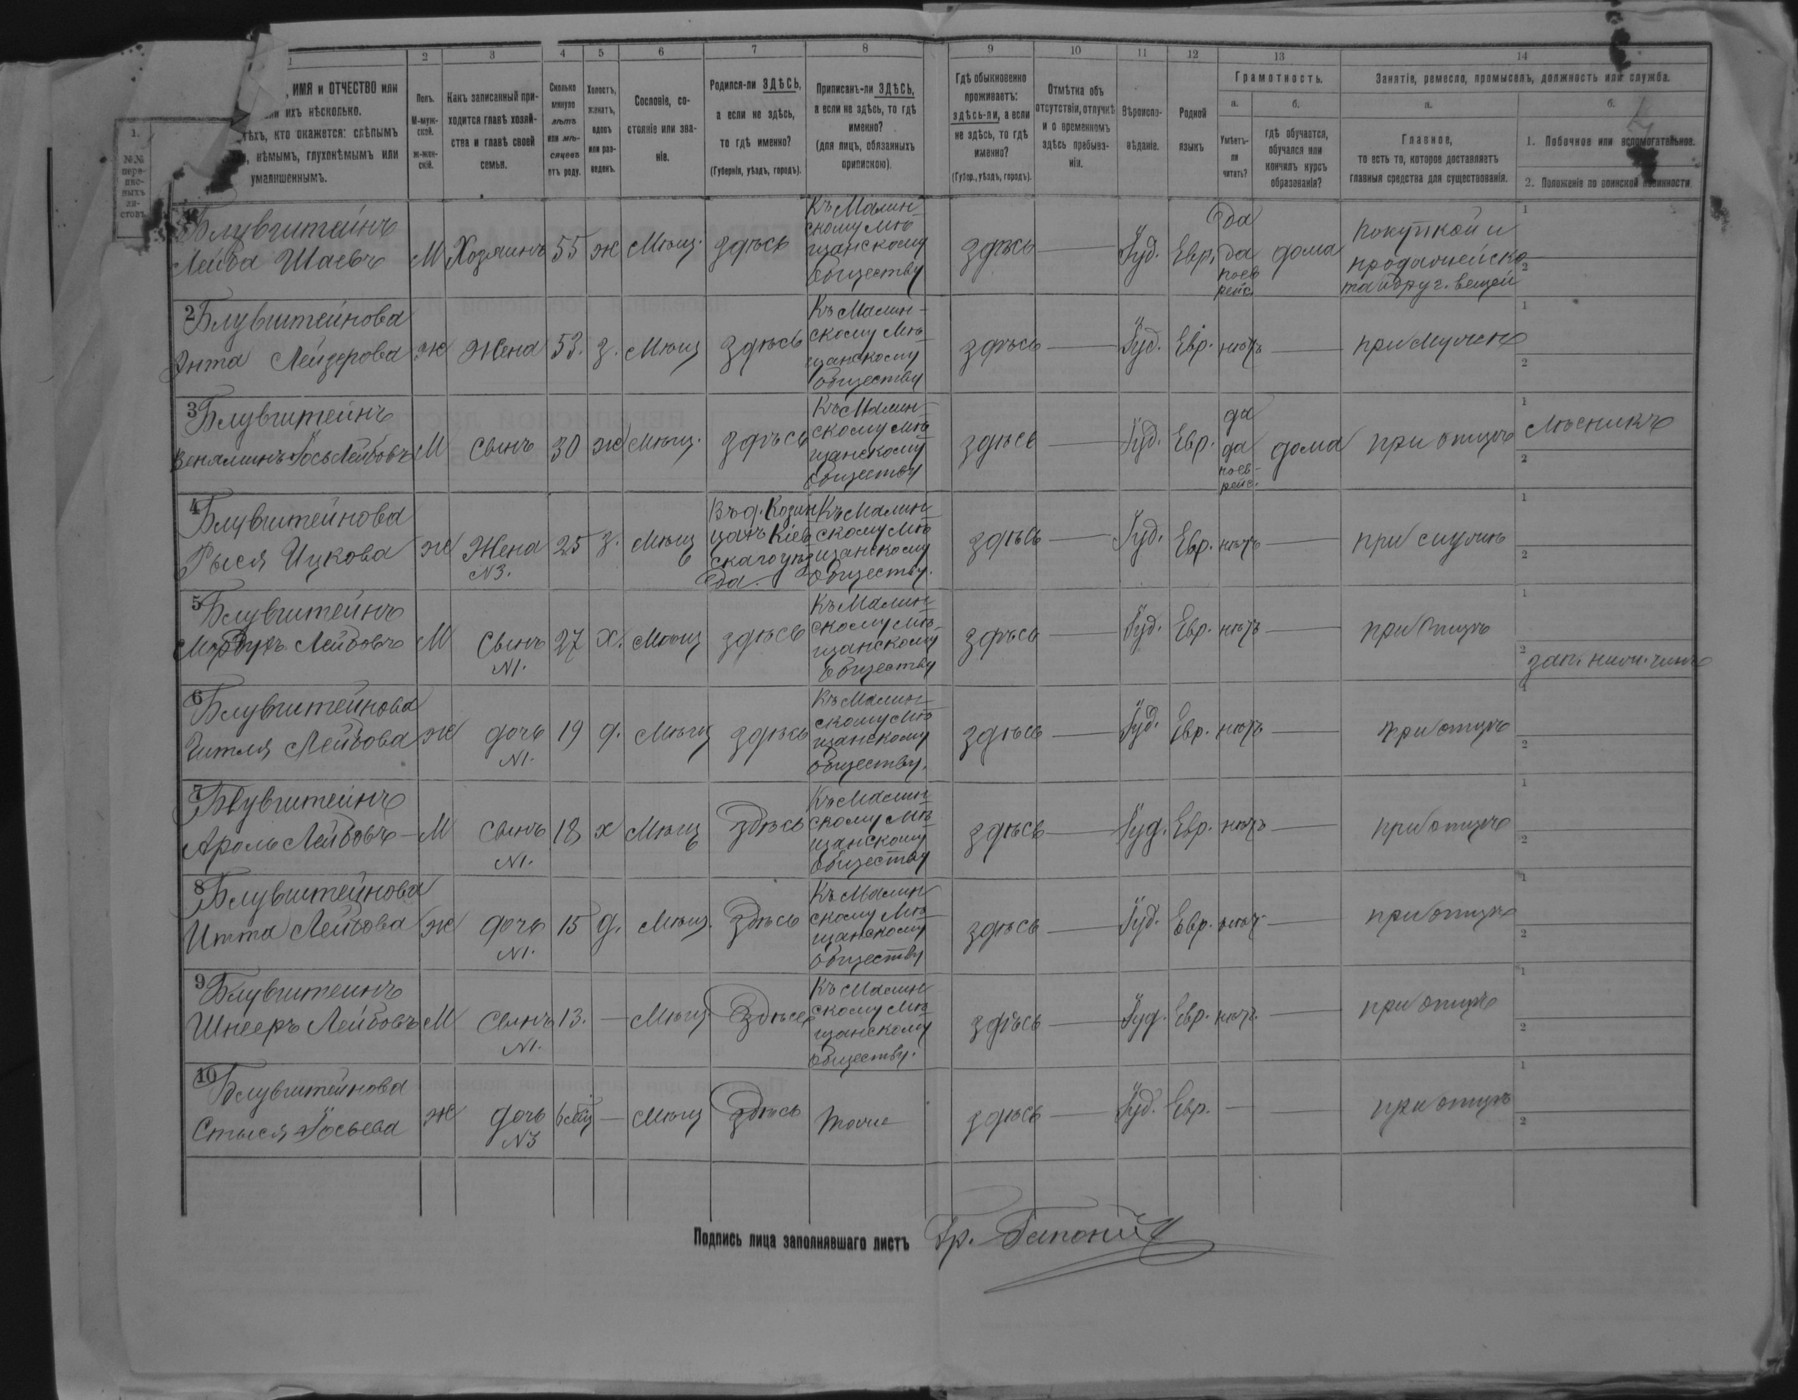 1 2 3 4 5 6 7 8 9 10 11 12 13 14
ИМЯ и ОТЧЕСТВО или
ихъ нѣсколько.
тѣхъ, кто окажется: слѣпымъ
нѣмымъ, глухонѣмымъ или
умалишеннымъ.
Полъ.
М-муж-
ской.
ж-жен-
скій.
Какъ записанный при-
ходится главѣ хозяй-
ства и главѣ своей
семьи.
Сколько
минуло
лѣтъ
или мѣ-
сяцевъ
отъ роду.
Холостъ,
женатъ,
вдовъ
или раз-
веденъ.
Сословіе, со-
стояніе или зва-
ніе.
Родился-ли ЗДѢСЬ,
а если не здѣсь,
то гдѣ именно?
(Губернія, уѣздъ, городъ).
Приписанъ-ли ЗДѢСЬ,
а если не здѣсь, то гдѣ
именно?
(для лицъ, обязанныхъ
припискою).
Гдѣ обыкновенно
проживаетъ:
здѣсь-ли, а если
не здѣсь, то гдѣ
именно?
(Губер., уѣздъ, городъ).
Отмѣтка объ
отсутствіи, отлучкѣ
и о временномъ
здѣсь пребыва-
ніи.
Вѣроиспо-
вѣданіе.
Родной
языкъ
Грамотность.
а.
Умѣетъ-
ли
читать?
б.
гдѣ обучается,
обучался или
кончилъ курсъ
образованія?
Занятіе, ремесло, промыселъ, должность или служба.
а.
Главное,
то есть то, которое доставляетъ
главныя средства для существованія.
б.
1. Побочное или вспомогательное.
2. Положеніе по воинской повинности
1.
№№
пере-
пис-
ныхъ
ли-
стовъ
Блувштейнъ
Лейба Шаевъ М Хозяинъ 55 ж Мѣщ. здѣсь Къ Малин-
скому Мѣ-
щанскому
обществу здѣсь — Іуд. Евр. да
да
поев
рейс. дома покупкой и
продажей ско-
та и друг. вещей 1 2
2 Блувштейнова
Энта Лейзерова ж Жена 53. з. Мѣщ здѣсь Къ Малин-
скому Мѣ-
щанскому
обществу здѣсь — Іуд. Евр. нѣтъ — при мужѣ 1 2
3 Блувштейнъ
Веняминъ Іось Лейбовъ М Сынъ 30 ж Мѣщ. здѣсь Къ Малин-
скому Мѣ-
щанскому
обществу здѣсь — Іуд. Евр. да
да
поев-
рейс. дома при отцѣ 1 2
4 Блувштейнова
Рыся Ицкова ж Жена
N3. 25 з. Мѣщ Къ Малин-
скому Мѣ
щанскому
обществу. здѣсь — Іуд. Евр. нѣтъ — при 1 2
5 Блувштейнъ
Лейбовъ М Сынъ
N1. 27 х. Мѣщ здѣсь Къ Малин-
скому Мѣ-
щанскому
обществу здѣсь — Іуд. Евр. нѣтъ — при отцѣ 1 2 зап. нижн. чинъ
6 Блувштейнова
Гитля Лейбова ж дочь
N1. 19 д. Мѣщ здѣсь Къ Малин-
скому Мѣ
щанскому
обществу. здѣсь — Іуд. Евр. нѣтъ — при отцѣ 1 2
7 Блувштейнъ
Аронъ Лейбовъ М Сынъ
N1. 18 х Мѣщ здѣсь Къ Малин-
скому Мѣ-
щанскому
обществу здѣсь — Іуд. Евр. нѣтъ — при отцѣ 1 2
8 Блувштейнова
Итта Лейбова ж дочь
N1. 15 д. Мѣщ. здѣсь Къ Малин
скому Мѣ-
щанскому
обществу здѣсь — Іуд. Евр. нѣтъ — при отцѣ 1 2
9 Блувштеинъ
Шнееръ Лейбовъ М Сынъ
N1. 13. — Мѣщ здѣсь Къ Малин
скому Мѣ
щанскому
обществу. здѣсь — Іуд. Евр. нѣтъ — при отцѣ 1 2
10 Блувштейнова
Стыся Іосьева ж дочь
N3 — Мѣщ здѣсь тоже здѣсь — Іуд. Евр. — при отцѣ 1 2
Подпись лица заполнявшаго листъ Гр.